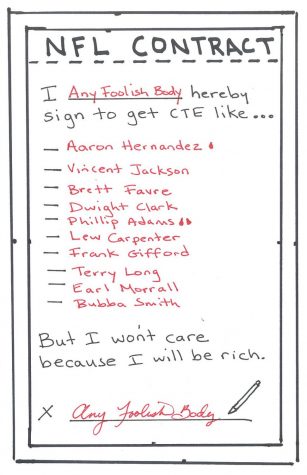 NFL CONTRACT
I Any Foolish Body hereby
sign to get CTE like...
— Aaron Hernandez
— Vincent Jackson
— Brett Favre
— Dwight Clark
— Phillip Adams
— Lew Carpenter
— Frank Gifford
— Terry Long
— Earl Morrall
— Bubba Smith
But I won't care
because I will be rich.
X Any Foolish Body